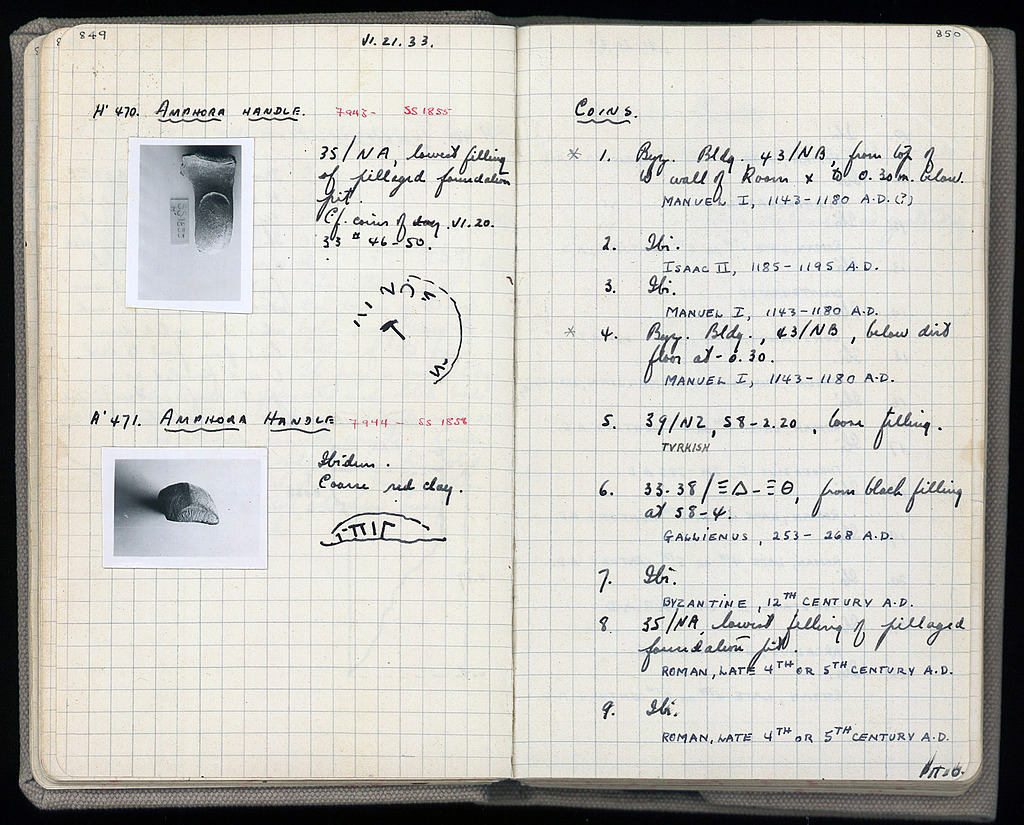 849
VI.21.33.
H'470. AMPHORA HANDLE. 7943- SS1855
35/NA, lowest filling
of pillaged foundation
pit.
Cf. coins of VI.20.
33 # 46-50.
SS1855
A'471. AMPHORA HANDLE 7944 - SS 1856
Ibidem.
Coarse red clay.
850
COINS.
* 1. Byz. Bldg. 43/NB, from top of
W wall of Room x to 0.30 m. below.
MANUEL I, 1143-1180 A.D.(?)
2. Ibi.
ISAAC II, 1185-1195 A.D.
3. Ibi.
MANUEL I, 1143-1180 A.D.
* 4. Byz. Bldg., 43/NB, below dirt
floor at -0.30.
MANUEL I, 1143-1180 A.D.
5. 39/NZ, 58-2.20, loose filling.
TVRKISH
6. 33-38/ΞΔ-ΞΘ, from black filling
at 58-4.
GALLIENUS, 253-268 A.D.
7. Ibi.
BYZANTINE, 12TH CENTURY A.D.
8. 35/NA, lowest filling of pillaged
foundation pit.
ROMAN, LATE 4TH OR 5TH CENTURY A.D.
9. Ibi.
ROMAN, LATE 4TH OR 5TH CENTURY A.D.